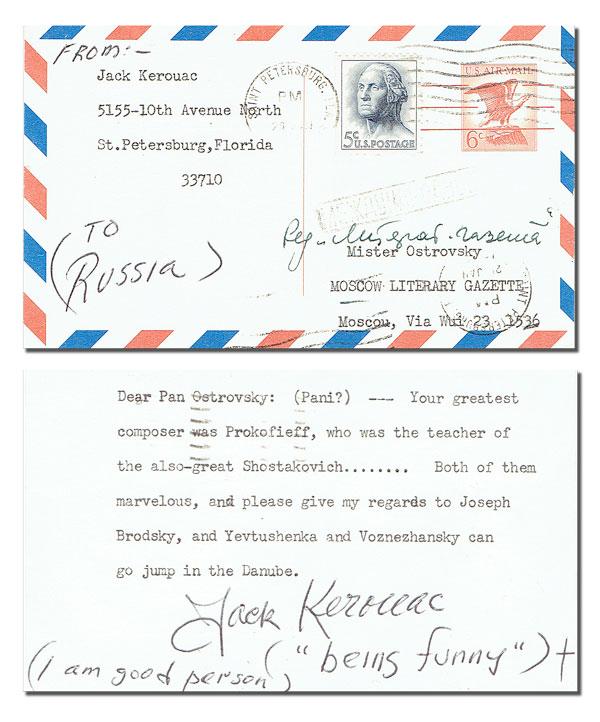 FROM:-
Jack Kerouac
5155-10th Avenue North
St.Petersburg,Florida
33710
SAINT PETERSBURG, FLA.
PM
5c U.S.POSTAGE
U.S. AIR MAIL
6c
(TO
RUSSIA)
Mister Ostrovsky
MOSCOW LITERARY GAZETTE
Moscou, Via Wui 23, 1536
Dear Pan Ostrovsky: (Pani?) --- Your greatest
composer was Prokofieff, who was the teacher of
the also-great Shostakovich........ Both of them
marvelous, and please give my regards to Joseph
Brodsky, and Yevtushenka and Voznezhansky can
go jump in the Danube.
Jack Kerouac
("being funny") †
(i am good person)